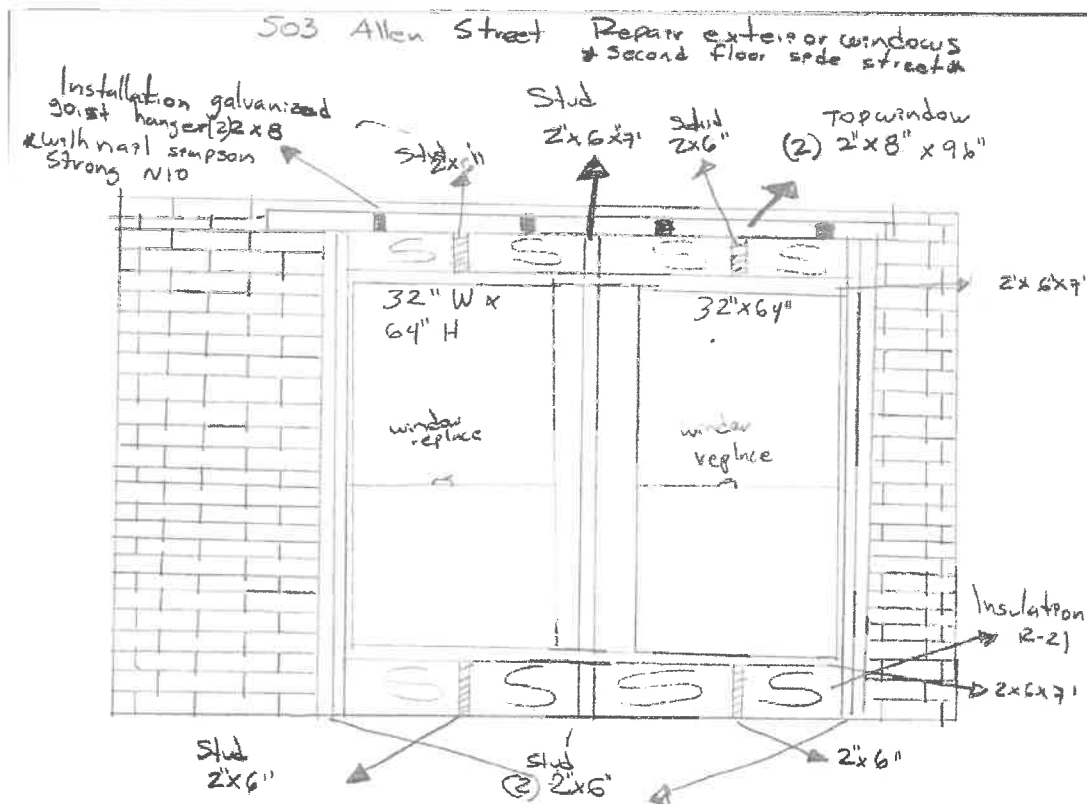 503 Allen Street Repair exterior windows
* Second floor side street *
Installation galvanized
goist hanger (2) 2x8
* with nail simpson
Strong N10
Stud
2"x6"
Stud
2"x6"x7'
Stud
2x6"
Top window
(2) 2"x8" x 96"
2"x6"x7'
32" W x
64" H
32"x64"
window
replace
window
replace
S S S S
S S S S
Insulation
R-21
2x6x7'
Stud
2"x6"
Stud
(2) 2"x6"
2"x6"